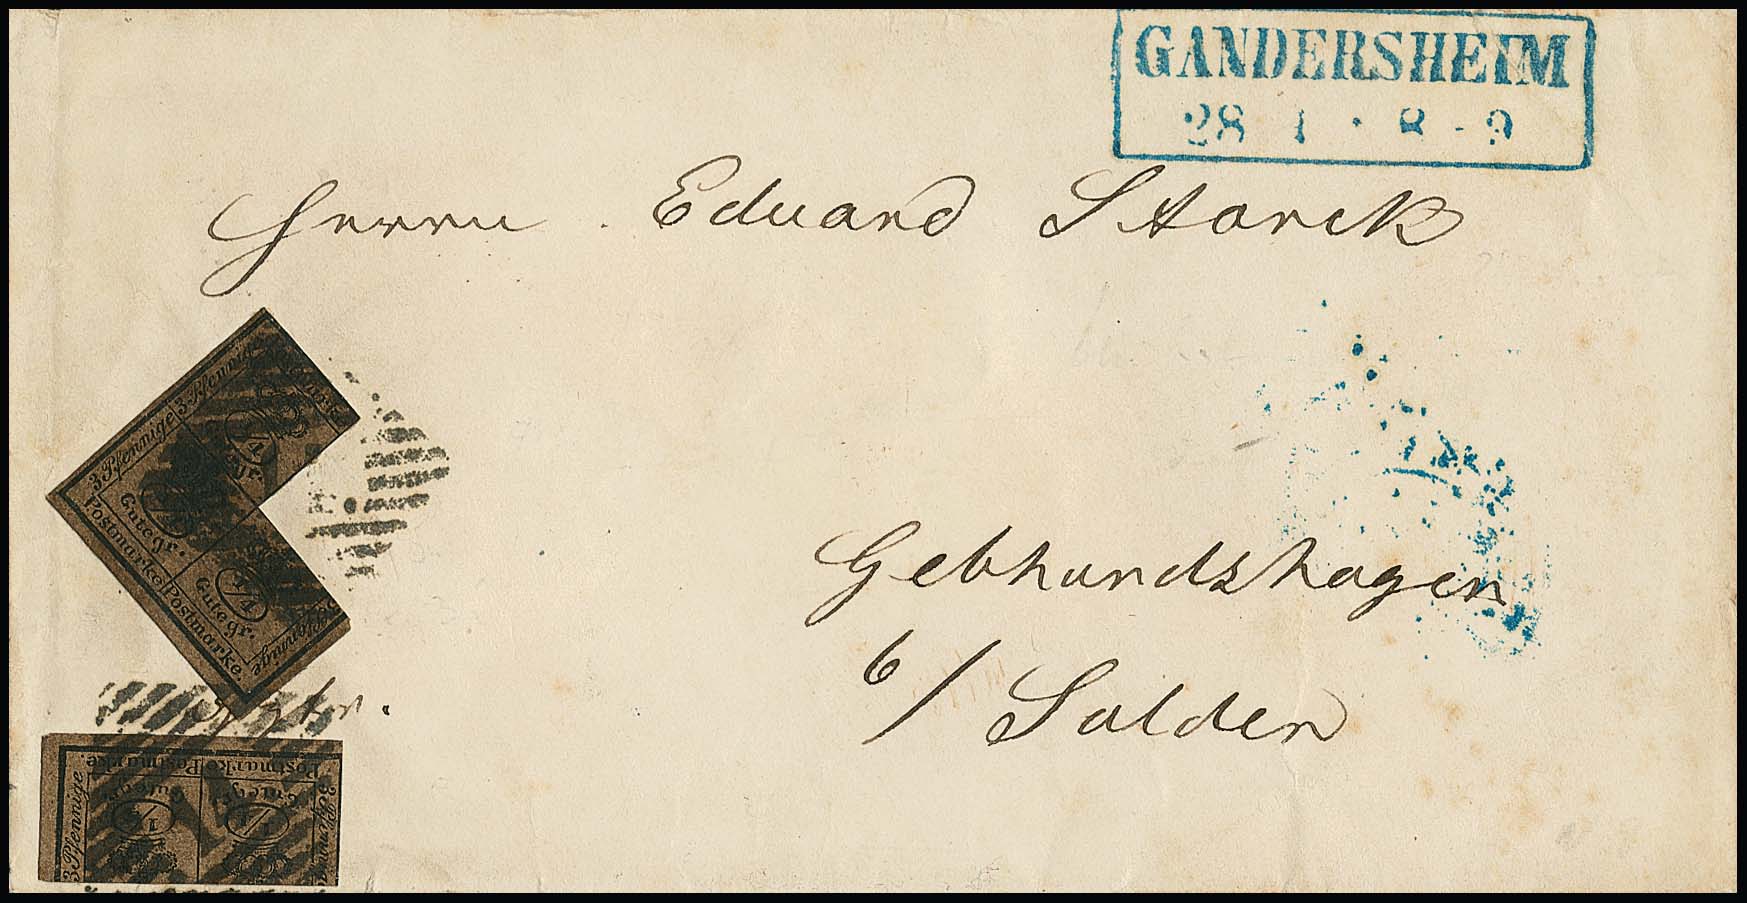 GANDERSHEIM
28 1 · 8-9
Herrn Eduard Storck
Gebhardshagen
b/ Salder
3 Pfennige 3 Pfennige
1/4
1/4
Gutegr.
Postmarke
1/4
Gutegr.
Postmarke.
Pfennige
Postmarke Postmarke.
Gutegr. Gutegr.
1/4 1/4
3 Pfennige